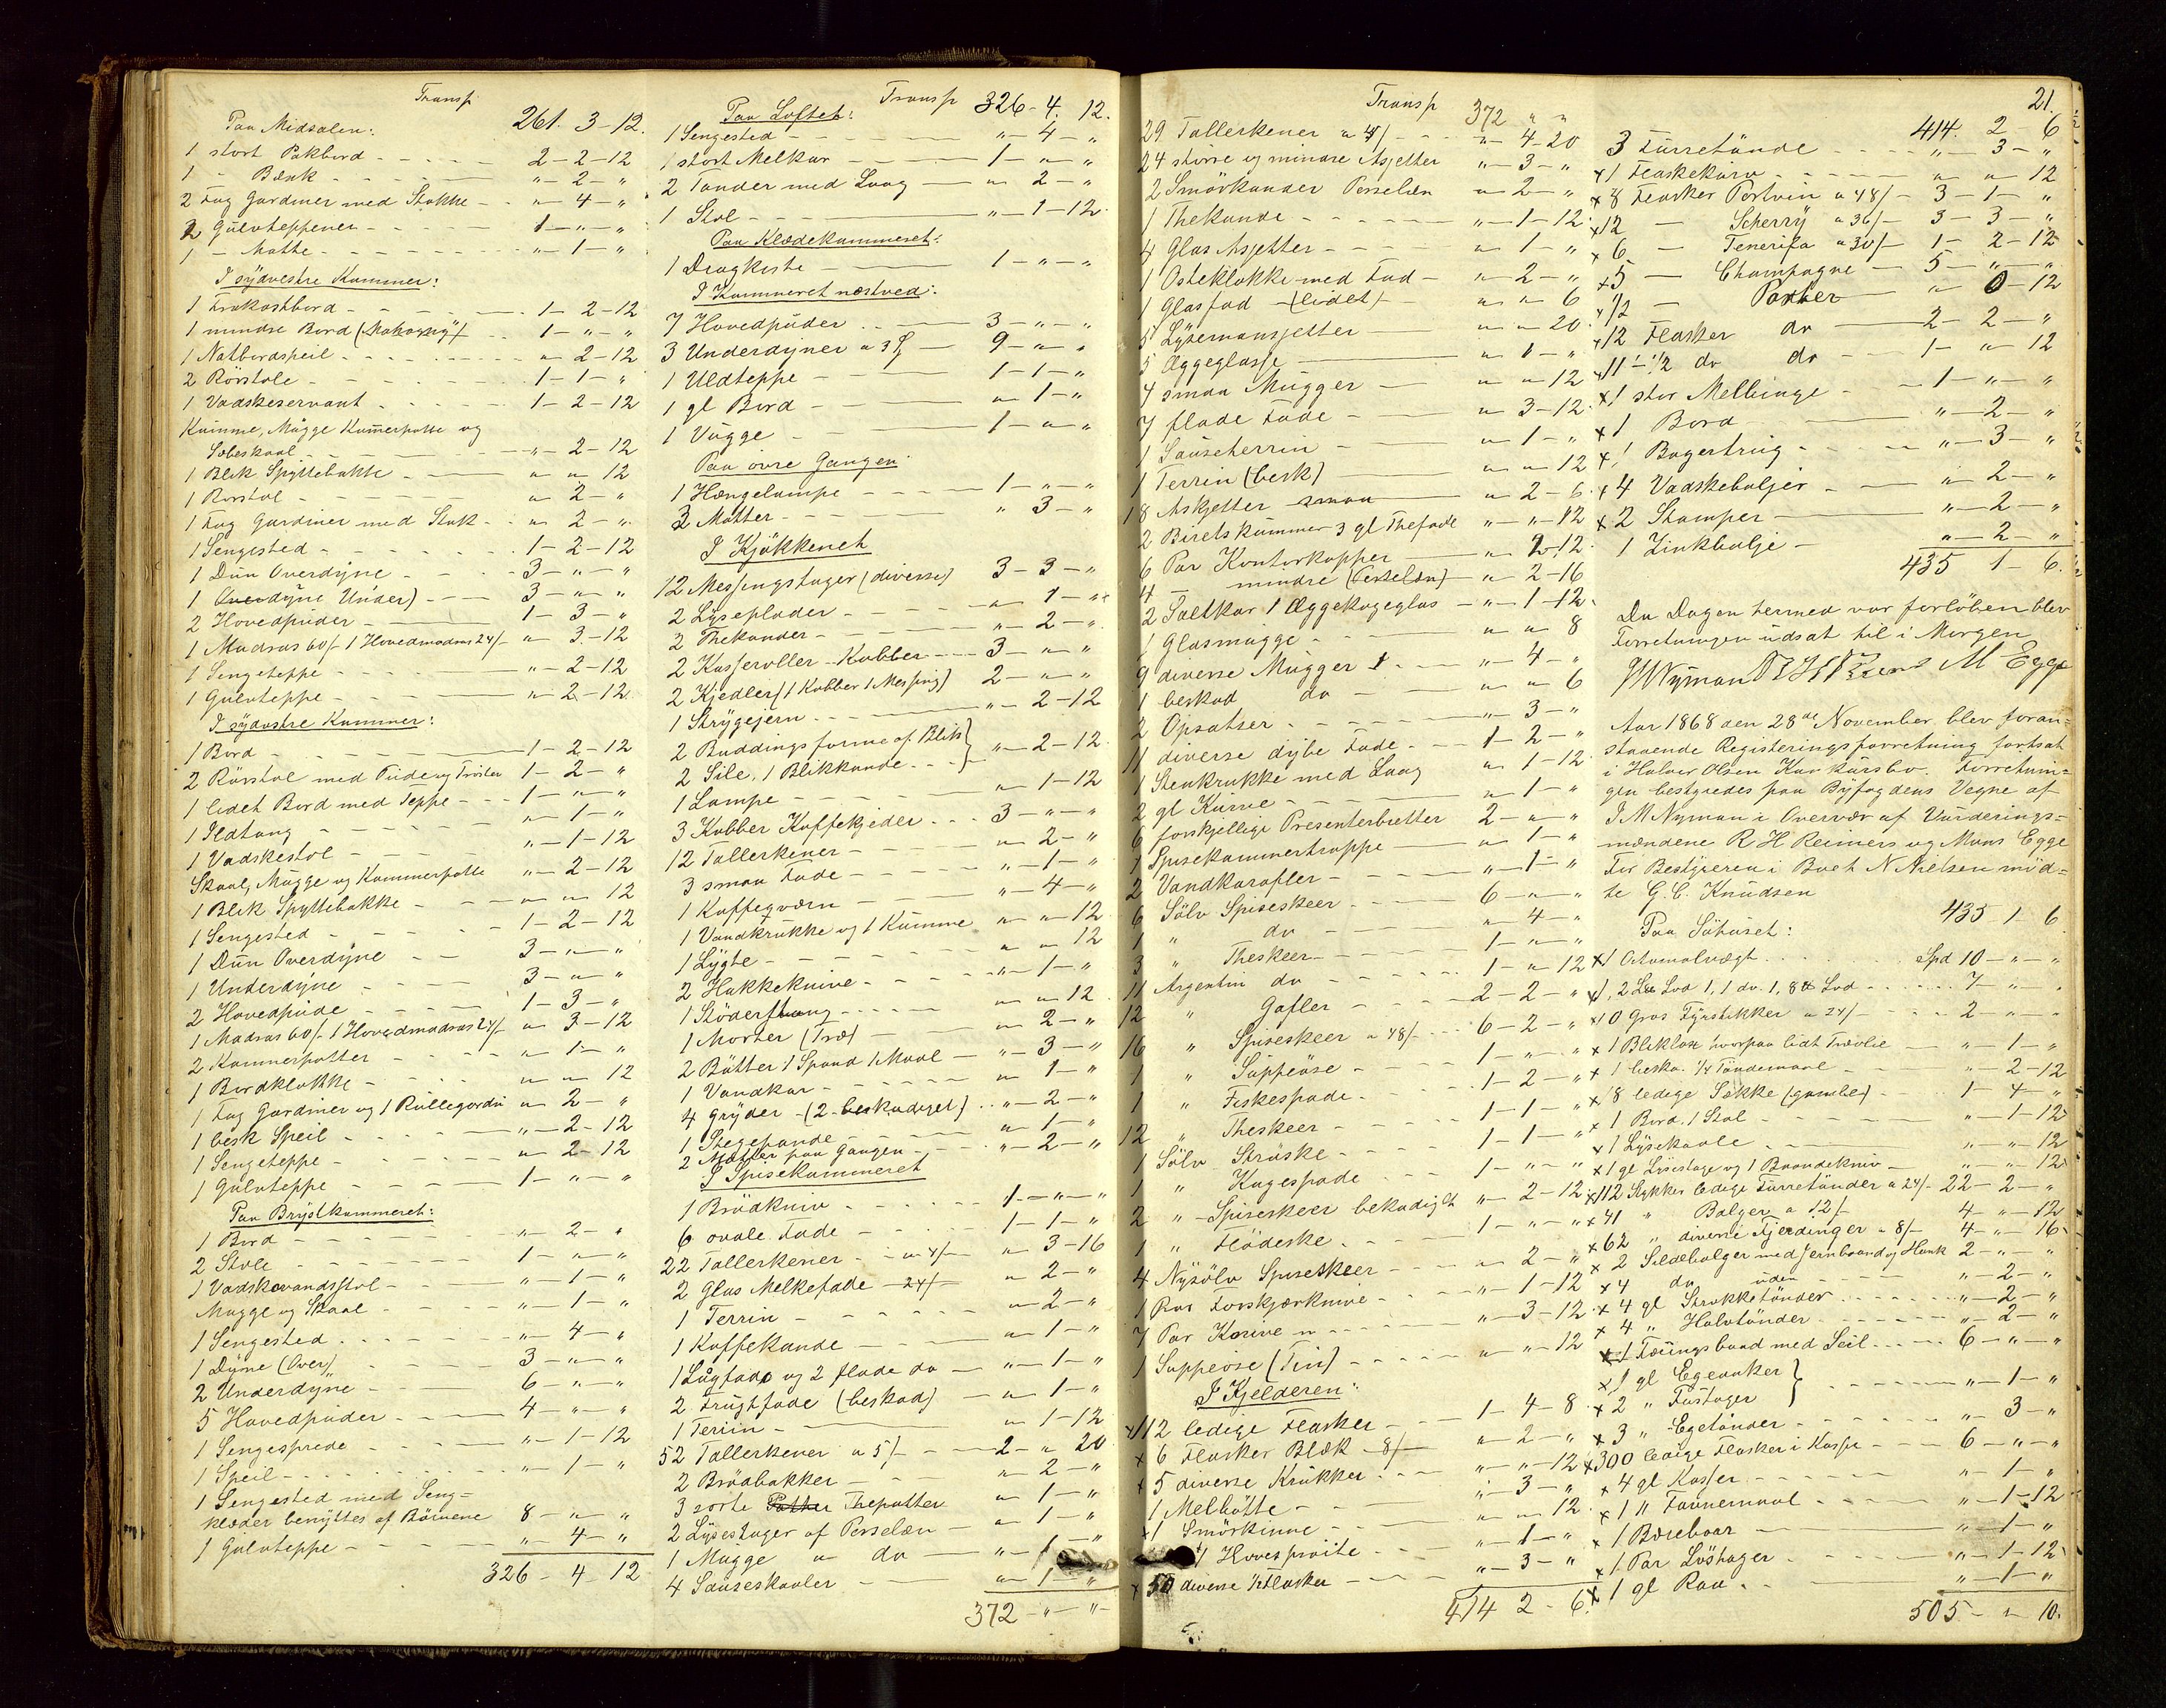 Transp 261. 3-12.
Paa Midsalen:
1 stort Pakbord - - - 2-2-12
1 - Bænk - - - "-2-"
2 Fag Gardiner med Stokke - - "-4-"
2 Gulvteppener - - - 1-"-"
1 - Matte - - - "-1-"
I sydvestre Kammer:
1 Frokostbord - - - 1-2-12
1 mindre Bord (Mahogny) - - 1-"-"
1 Natbordspeil - - - "-2-12
2 Rörstole - - - 1-1-"
1 Vadskeservant - - - 1-2-12
Kumme, Mugge Kammerpotte og
Sæbeskaal - - - "-2-12
1 Blik Spyttebakke - - - "-"-12
1 Rörstol - - - "-2-"
1 Fag Gardiner med Stok - - "-2-"
1 Sengested - - - 1-2-12
1 Dun Overdyne - - - 3-"-"
1 Overdyne Under) - - - 3-"-"
2 Hovedpuder - - - 1-3-"
1 Madras 60/- 1 Hovedmadras 24/- "-3-12
1 Sengeteppe - - - "-2-12
1 Gulvteppe - - - "-2-12
I sydostre Kammer:
1 Bord - - - 1-2-12
2 Rörstol med Pude og 1-2-"
1 lidet Bord med Teppe - - - 1-"-"
1 Ildtang - - - "-1-"
1 Vadskestol - - - "-1-12
Skaal, Mugge og Kammerpotte "-2-12
1 Blik Spyttebakke - - - "-"-12
1 Sengested - - - 1-2-12
1 Dun Overdyne - - 3-"-"
1 Underdyne - - - 3-"-"
2 Hovedpude - - - 1-3-"
1 Madras 60/- 1 Hovedmadras 24/- "-3-12
2 Kammerpotter - - - "-1-"
1 Bordklokke - - - "-"-12
1 Fag Gardiner og 1 Rullegardin "-2-"
1 besk Speil - - - "-2-12
1 Sengeteppe - - - "-2-12
1 Gulvteppe - - - 1-"-"
Paa Brystkammeret:
1 Bord - - - "-2-"
2 Stole - - - 1-"-"
1 Vadskevandsstol - - "-1-"
Mugge og Skaal - - - "-1-"
1 Sengested - - - "-4-"
1 Dyne (Over) - - - 3-"-"
2 Underdyne - - - 6-"-"
5 Hovedpuder - - - 4-"-"
1 Sengesprede - - - "-1-12
1 Speil - - - "-1-"
1 Sengested med Seng=
klæder benyttes af Börnene 8-"-"
1 Gulvteppe - - - "-4-"
326-4-12
Transp 326-4.12.
Paa Loftet:
1 Sengested - - - "-4-"
1 stort Melkar - - - 1-"-"
2 Tönder med Laag - - "-2-"
1 Stol - - - "-1-12
Paa Klædekammeret:
1 Dragkiste - - - 1-"-"
I Kammeret næstved:
7 Hovedpuder - - - 3-"-"
3 Underdyner a 3 - 9-"-"
1 Uldteppe - - - 1-1-"
1 gl Bord - - - "-1-"
1 Vugge - - - 1-"-"
Paa övre Gangen
1 Hængelampe - - - 1-"-"
3 Matter - - - "-3-"
I Kjökkenet
12 Messingstager (diverse) 3-3-"
2 Lyseplader - - - "-1-"
2 Thekander - - - "-2-"
2 Kasseroller - Kobber - - 3-"-"
2 Kjedler (1 Kobber 1 Messing) 2-"-"
1 Strygejern - - - "-2-12
2 Buddingsforme af Blik }
2 Sile, 1 Blikkande - - } "-2-12
1 Lampe - - - "-1-12
3 Kobber Kaffekjeder - - - 3-"-"
12 Tallerkener - - - "-2-"
3 smaa Fade - - - "-1-"
1 Kaffeqværn - - - "-4-"
1 Vandkrukke og 1 Kumme "-"-12
1 Lygte - - - "-"-12
2 Hakkeknive - - - "-1-"
1 Stöderstang - - - "-"-12
1 Morter (Træ) - - - "-2-"
2 Bötter 1 Spand 1 Maal - "-3-"
1 Vandkar - - - "-1-"
4 Gryder - (2 beskadiget) - - "-2-"
1 Stegepande - - - "-1-"
2 Matter paa Gangen - - - "-2-"
I Spisekammeret
1 Brödkniv - - - 1-"-"
6 ovale Fade - - - 1-1-"
22 Tallerkener - a 4/- "-3-16
2 Glas Melkefade - 24/- "-2-"
1 Terrin - - - "-2-"
1 Kaffekande - - - "-1-"
1 Lågfad og 2 flade do - "-1-"
2 Frugtfade (beskad) - "-1-"
1 Teriin - - - "-1-12
52 Tallerkener a 5/- - 2-"-20
2 Bröabakker - - - "-2-"
3 sorte Potter Thepotter "-1-"
2 Lysestager af Porselæn - "-1-"
1 Mugge " do - - "-1-"
4 Sauseskaaler - - - "-1-"
372-"-"-
Transp 372 " "
29 Tallerkener a 4/- - - "-4-20
24 större og mindre Asjetter "-3-"
2 Smörkander Porselæn "-2-"
1 Thekande - - - "-1-12
4 Glas Asjetter - - - "-1-"
1 Osteklokke med Fad - "-2-"
1 Glasfad - (lidet) - "-"-6
5 Lysemansjetter - - "-"-20
5 Æggeglasse - - - "-1-"
4 smaa Mugger - - "-"-12
7 flade Fade - - - "-3-12
1 Sauseterrin - - - "-1-"
1 Terrin (besk) - - - "-"-12
18 Askjetter smaa - - "-2-6
2 Birets kummer 3 gl Thefade "-"-12
6 Par Kontorkopper - - "-2-12
4 - mindre (Porselæn) - "-2-16
2 Saltkar 1 Æggekogeglas - "-1-12
1 Glasmugge - - - "-"-8
9 diverse Mugger - - - "-4-"
1 beskad do - - "-"-6
2 Opsatser - - - "-3-"
11 diverse dybe Fade - - 1-2-"
1 Stenkrukke med Laag "-1-12
2 gl Kurve - - - "-1-"
6 forskjellige Presenterbretter 2-"-"
1 Spisekammertrappe - "-1-"
2 Vandkarafler - - - "-1-"
6 Sölv Spiseskeer - - - 6-"-"
1 " do - - - "-4-"
3 " Theskeer - - - 1-"-"
11 Argentin do - - - 1-"-12
12 " Gafler - - - 2-2-"
16 " Spiseskeer a 48/- - 6-2-"
1 " Suppeöse - - - 1-"-"
1 " Fiskespade - - - 1-2-"
12 " Theskeer - - - 1-1-"
1 Sölv Ströske - - - 1-1-"
1 " Kagespade - - - 1-"-"
2 " - Spiseskeer bekadigt "-2-12
1 " Flödeske - - - 1-"-"
4 Nysölv Spiseskeer - - - "-2-"
1 Par Forskjærknive - - - "-1-12
7 Par Knive " - - - "-3-12
1 Suppeöse (Tin) - - - "-"-12
I Kjelderen:
x 112 ledige Flasker - - 1-4-8
x 6 Flasker Blæk - 8/- "-2-"
x 5 diverse Krukker - - "-"-12
1 Melbötte - - - "-3-"
x 1 Smörkinne - - - "-"-12
1 Hovesproite - - - "-1-"
x 50 diverse ½ Flasker - - - "-3-"
414 2-6
21.
414. 2-6
3 Turretönde - - - "-3-"
x 1 Flaskekurv - - - "-"-12
x 8 Flasker Portvin a 48/- 3-1-"
x 12 - Scherry a 36/- 3-3-"
x 6 - Tenerifa a 30/- 1-2-12
x 5 - Champagne - 5-"-"
x 1/2 - Porter - "-0-12
x 12 Flasker do - 2-2-"
x 11 - 1/2 do do - - 1-"-12
x 1 stor Melbinge - - 1-"-"
x 1 Bord - - - "-2-"
x 1 Bagertrug - - - "-3-"
x 4 Vadskebaljer - - "-2-"
x 2 Stamper - - - "-2-"
1 Zinkbalje - - - "-2-"
435 1-6.
Da Dagen hermed var forlöben blev
Forretningen udsat til i Morgen
JMNyman RHReimers M Egge
Aar 1868 den 28de November blev foran=
staaende Registeringsforretning fortsat
i Halvor Olsen Kav kursbo. Forretnin=
gen bestyredes paa Byfogdens Vegne af
J M Nyman i Overvær af Vurderings=
mændene R H Reimers og Mons Egge
For Bestyreren i Boet N Nielsen möd=
te G. C. Knudsen
435-1-6
Paa Söhuset:
x 1 Vægt - - - Spd 10-"-"
x 1, 2 Lod 1, 1 do. 1, 8 Lod - - - 7-"-"
x 10 Gros Fyrstikker a 24/- - - 2-"-"
x 1 Blikkasse hvorpaa lidt Træolie - "-1-"
x 1 beska. 1/4 Töndemaal - - "-2-12
x 18 ledige Sække (gamle) - - 1-4-"
x 1 Bord. 1 Stol - - - "-1-12
x 1 Lysekaale - - - "-"-12
x 1 gl Lysestage og 1 Baandekniv - "-"-12
x 112 Stykker ledige Turretönder a 24/- 22-2-"
x 41 " Balger a 12/- 4-"-12
x 62 " diverse Fjerdinger a 8/- 4-"-16
x 2 Sildebalger med Jernbaand og Hank 2-"-"
x 4 do uden - - - "-2-"
x 4 gl Strokketönder - - - "-2-"
x 4 " Halvtönder - - - "-2-"
x 1 Færingsbaad med Seil - - 6-"-"
x 1 gl Egeanker }
x 2 " Fustager } - - - "-1-"
x 3 " Egetönder - - - "-3-"
x 300 ledige Flasker i Kasse - - 6-"-"
x 4 gl Kasser - - - "-1-"
x 1 " Favnemaal - - - "-1-12
x 1 Bæreboar - - - "-1-"
x 1 Par Löstager - - - "-1-12
x 1 gl Raa - - - "-1-"
505-"-10.